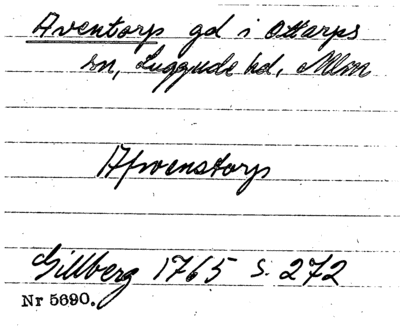 Aventorp gd i Ottarps
sn, Luggude hd, Mlm
Afvenstorp
Gillberg 1765 s. 272
Nr 5690.